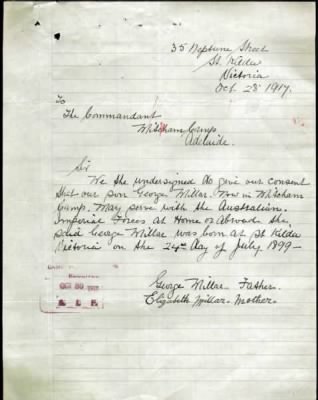 35 Neptune Street
St. Kilda
Victoria
Oct 28 1917.
To
The Commandant
Mitcham Camp
Adelaide.
Sir
We the undersigned do give our consent
that our son George Millar. Now in Mitcham
Camp. May serve with the Australian.
Imperial Forces at Home or Abroad the
said George Millar was born at St Kilda
Victoria on the 24th day of July 1899-
RECEIVED
OCT 30
George Millar - Father.
Elizabeth Millar - Mother-